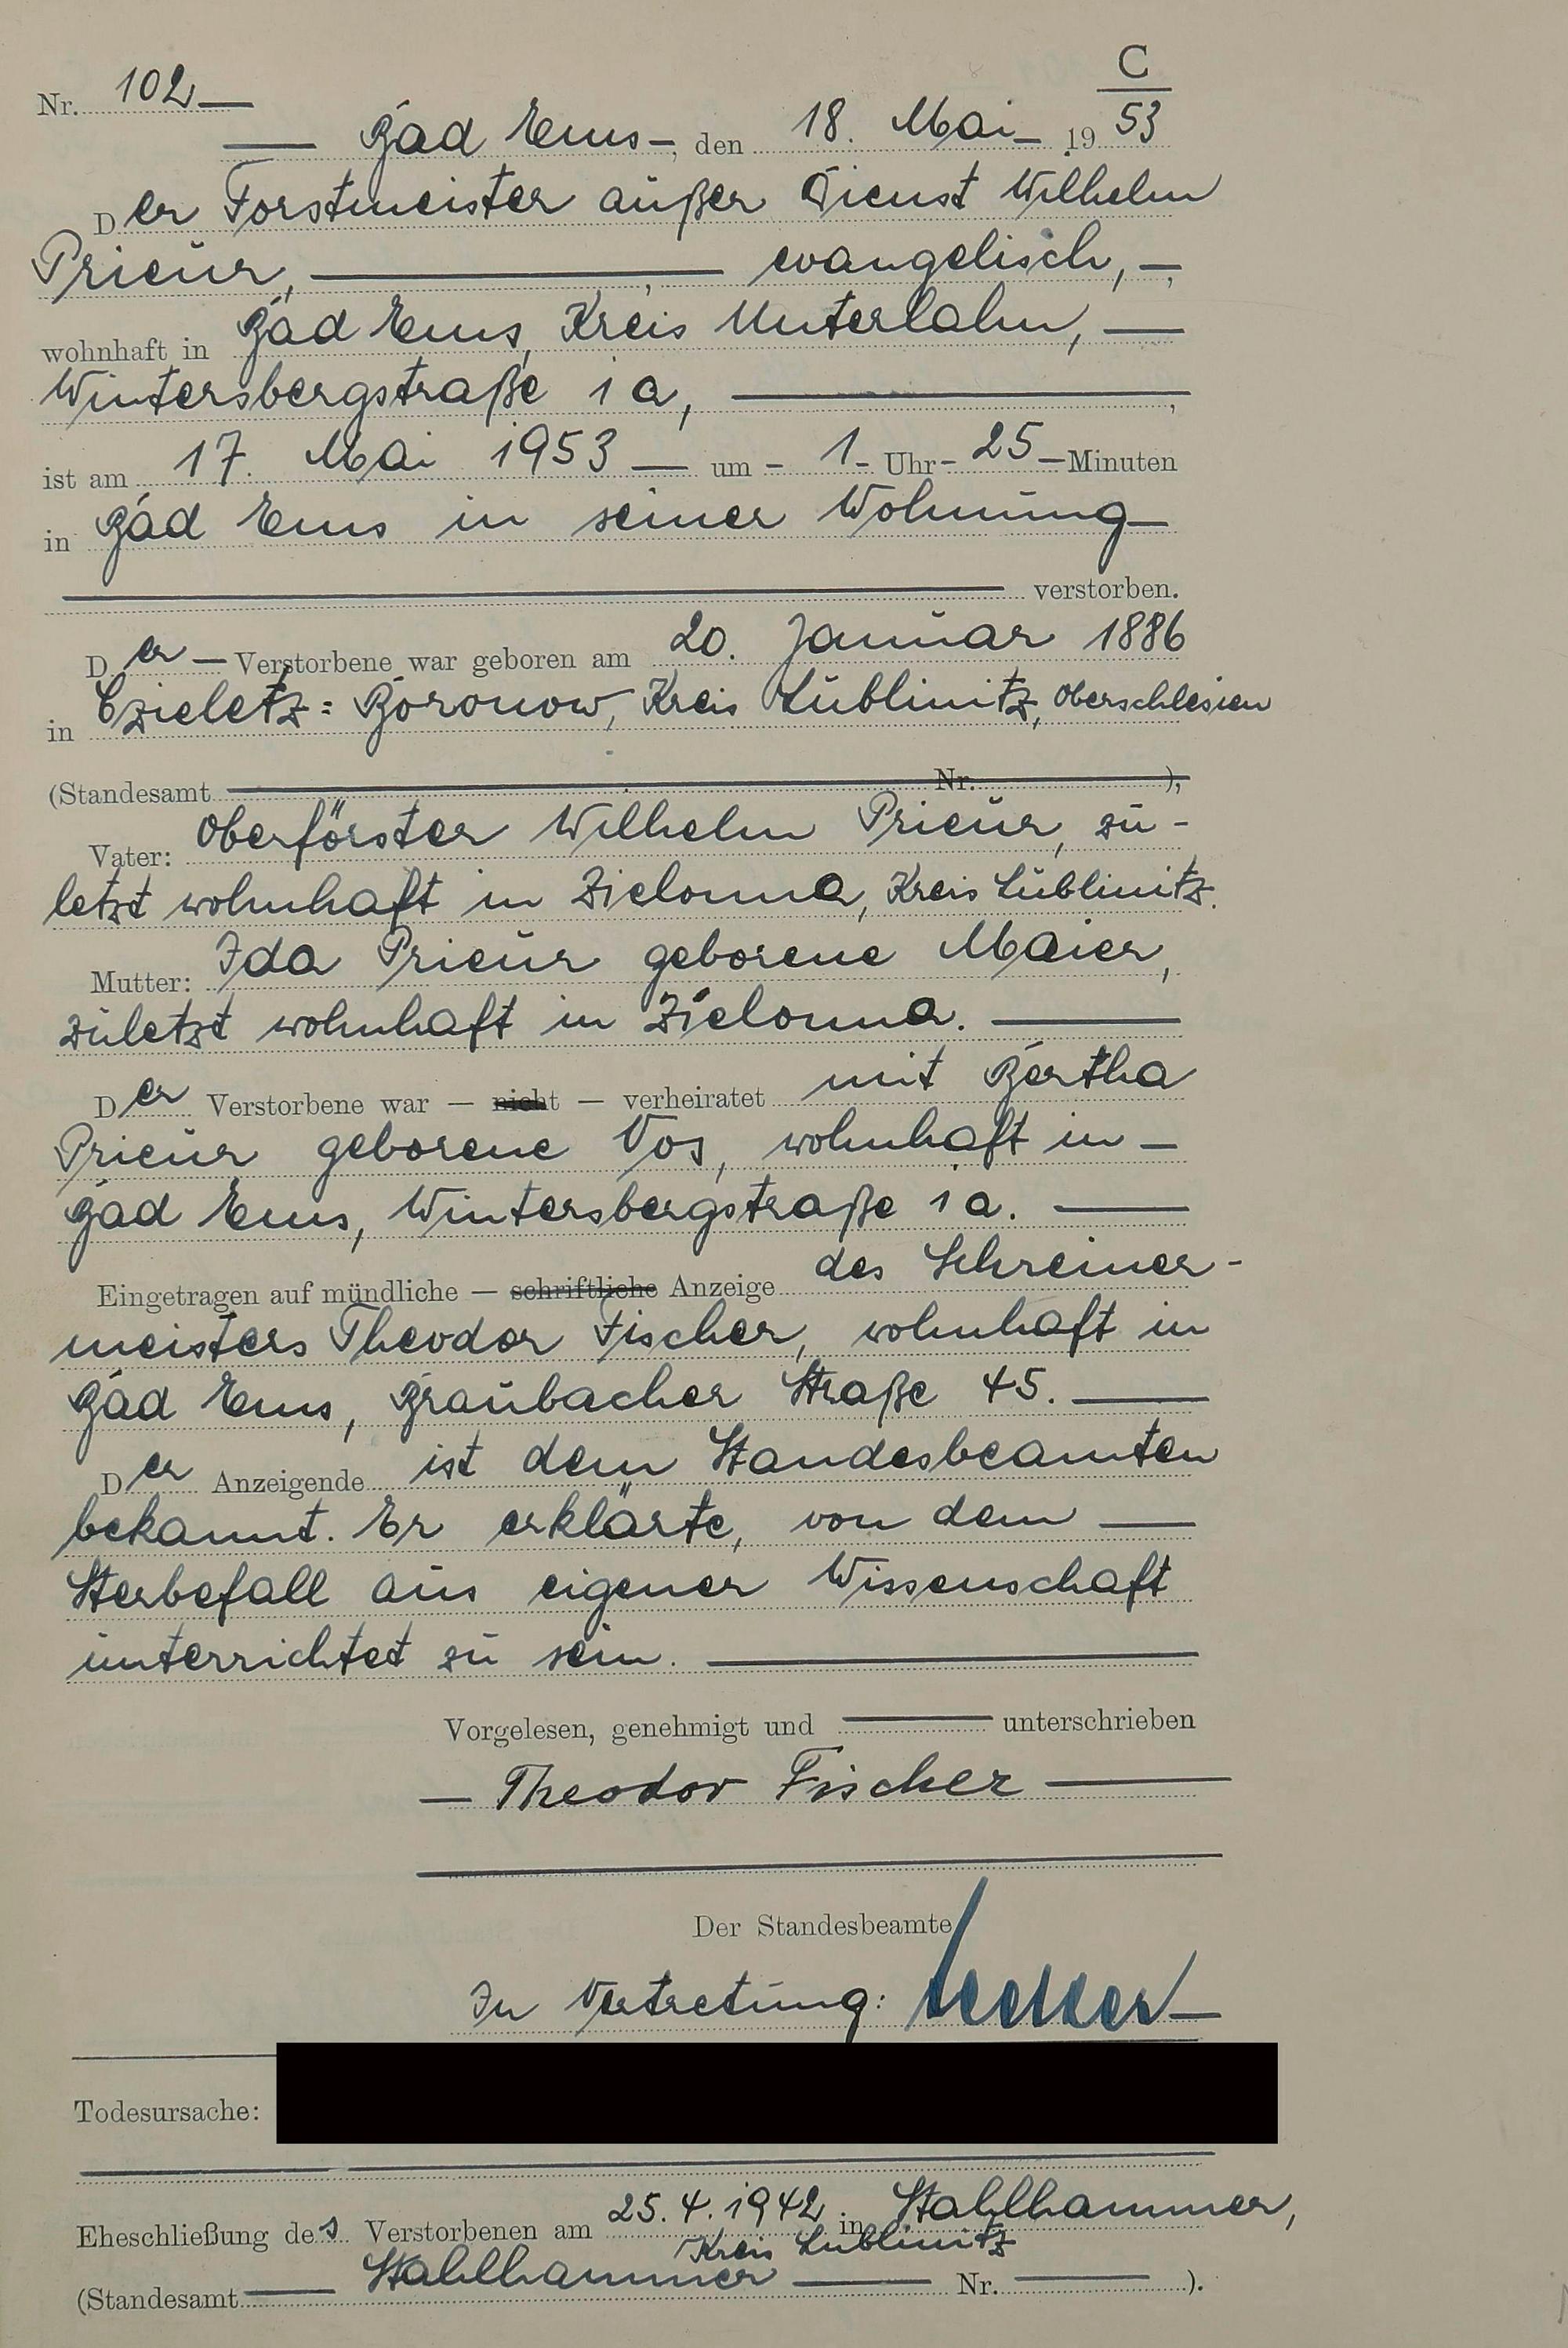 C
Nr. 102 —
— Bad Ems —, den 18. Mai — 19 53
Der Forstmeister außer Dienst Wilhelm
Prieur, — , evangelisch, —,
wohnhaft in Bad Ems, Kreis Unterlahn, —
Wintersbergstraße 1a, — ,
ist am 17. Mai 1953 — um — 1 — Uhr — 25 — Minuten
in Bad Ems in seiner Wohnung —
— verstorben.
Der — Verstorbene war geboren am 20. Januar 1886
in Czieletz = Boronow, Kreis Lublinitz, Oberschlesien
(Standesamt — Nr. — ),
Vater: Oberförster Wilhelm Prieur, zu-
letzt wohnhaft in Zielonna, Kreis Lublinitz.
Mutter: Ida Prieur geborene Maier,
zuletzt wohnhaft in Zielonna. —
Der Verstorbene war — nicht — verheiratet mit Bertha
Prieur geborene Vos, wohnhaft in —
Bad Ems, Wintersbergstraße 1a. —
Eingetragen auf mündliche — schriftliche Anzeige des Schreiner-
meisters Theodor Fischer, wohnhaft in
Bad Ems, Braubacher Straße 45. —
Der Anzeigende ist dem Standesbeamten
bekannt. Er erklärte, von dem —
Sterbefall aus eigener Wissenschaft
unterrichtet zu sein. —
Vorgelesen, genehmigt und — unterschrieben
— Theodor Fischer —
Der Standesbeamte
In Vertretung:
Todesursache:
Eheschließung des Verstorbenen am 25.4.1942 in Stahlhammer,
Kreis Lublinitz
(Standesamt — Stahlhammer — Nr. — ).